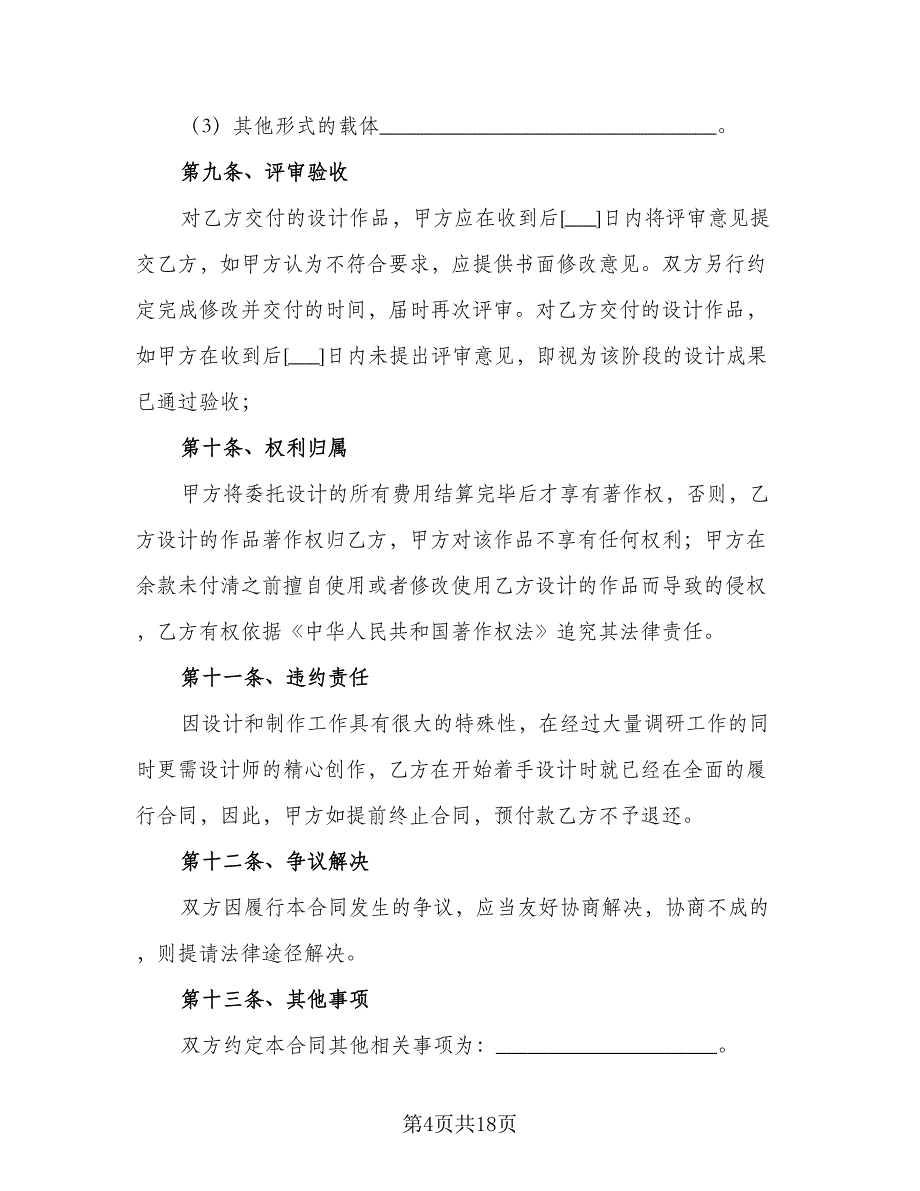 （3）其他形式的载体________________________________。
第九条、评审验收
对乙方交付的设计作品，甲方应在收到后[___]日内将评审意见提
交乙方，如甲方认为不符合要求，应提供书面修改意见。双方另行约
定完成修改并交付的时间，届时再次评审。对乙方交付的设计作品，
如甲方在收到后[___]日内未提出评审意见，即视为该阶段的设计成果
已通过验收；
第十条、权利归属
甲方将委托设计的所有费用结算完毕后才享有著作权，否则，乙
方设计的作品著作权归乙方，甲方对该作品不享有任何权利；甲方在
余款未付清之前擅自使用或者修改使用乙方设计的作品而导致的侵权
，乙方有权依据《中华人民共和国著作权法》追究其法律责任。
第十一条、违约责任
因设计和制作工作具有很大的特殊性，在经过大量调研工作的同
时更需设计师的精心创作，乙方在开始着手设计时就已经在全面的履
行合同，因此，甲方如提前终止合同，预付款乙方不予退还。
第十二条、争议解决
双方因履行本合同发生的争议，应当友好协商解决，协商不成的
，则提请法律途径解决。
第十三条、其他事项
双方约定本合同其他相关事项为：_____________________。
第4页共18页